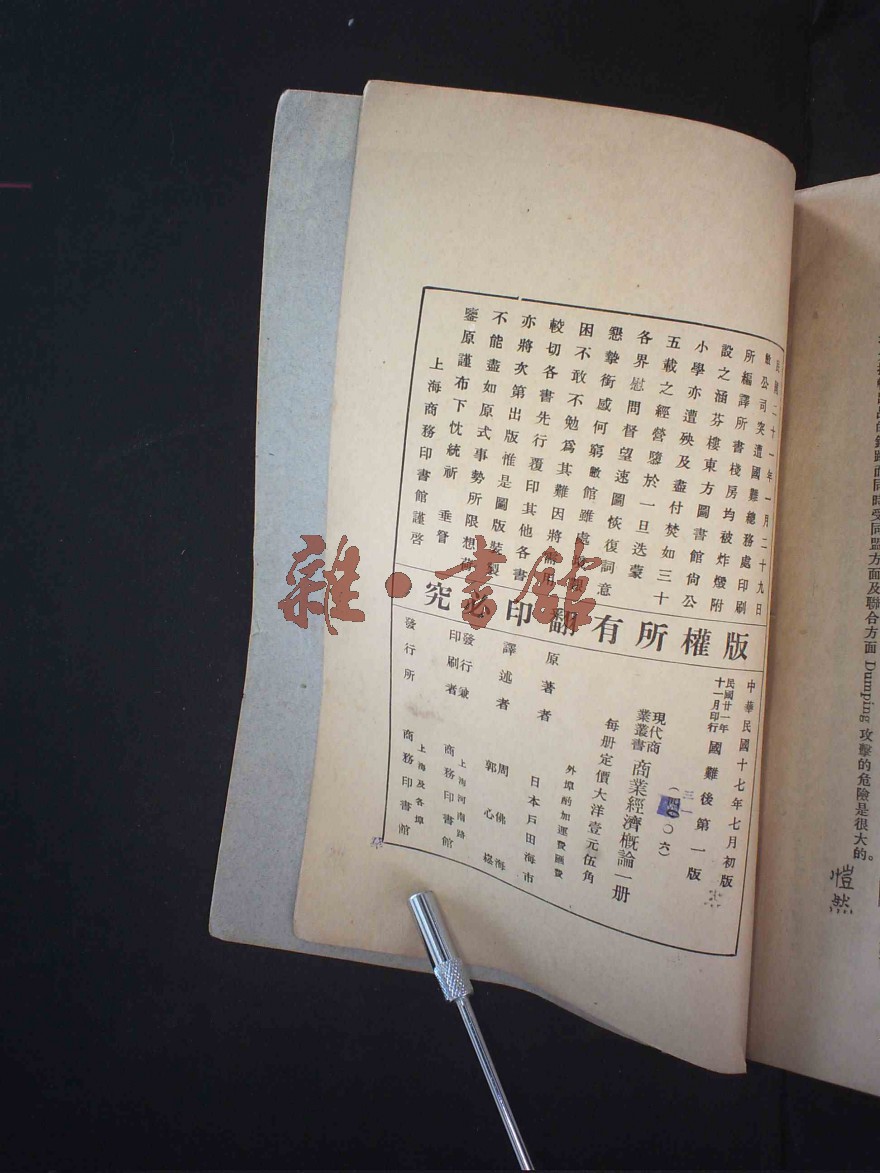 民國二十一年一月二十九日
敝公司突遭國難總務處印刷
所編譯所書棧房均被炸燬附
設之涵芬樓東方圖書館尙公
小學亦遭殃及盡付焚如三十
五載之經營隳於一旦迭蒙
各界慰問督望速圖恢復詞意
懇摯銜感何窮敝館雖處
困不敢不勉爲其難因將需用
較切各書先行覆印其他各書
亦將次第出版惟是圖版裝製
不能盡如原式事勢所限想荷
鑒原謹布下忱統祈 垂詧
上海商務印書館謹啓
版權所有翻印必究
中華民國十七年七月初版
民國廿一年十一月印行 國難後第一版
(三一〇六)
現代商業叢書 商業經濟概論一册
每册定價大洋壹元伍角
外埠酌加運費匯費
原著者 日本戶田海市
譯述者 周佛海 郭心崧
發行兼印刷者 上海河南路 商務印書館
發行所 上海及各埠 商務印書館
雜·書館
而同時受同盟方面及聯合方面 Dumping 攻擊的危險是很大的。
愷然